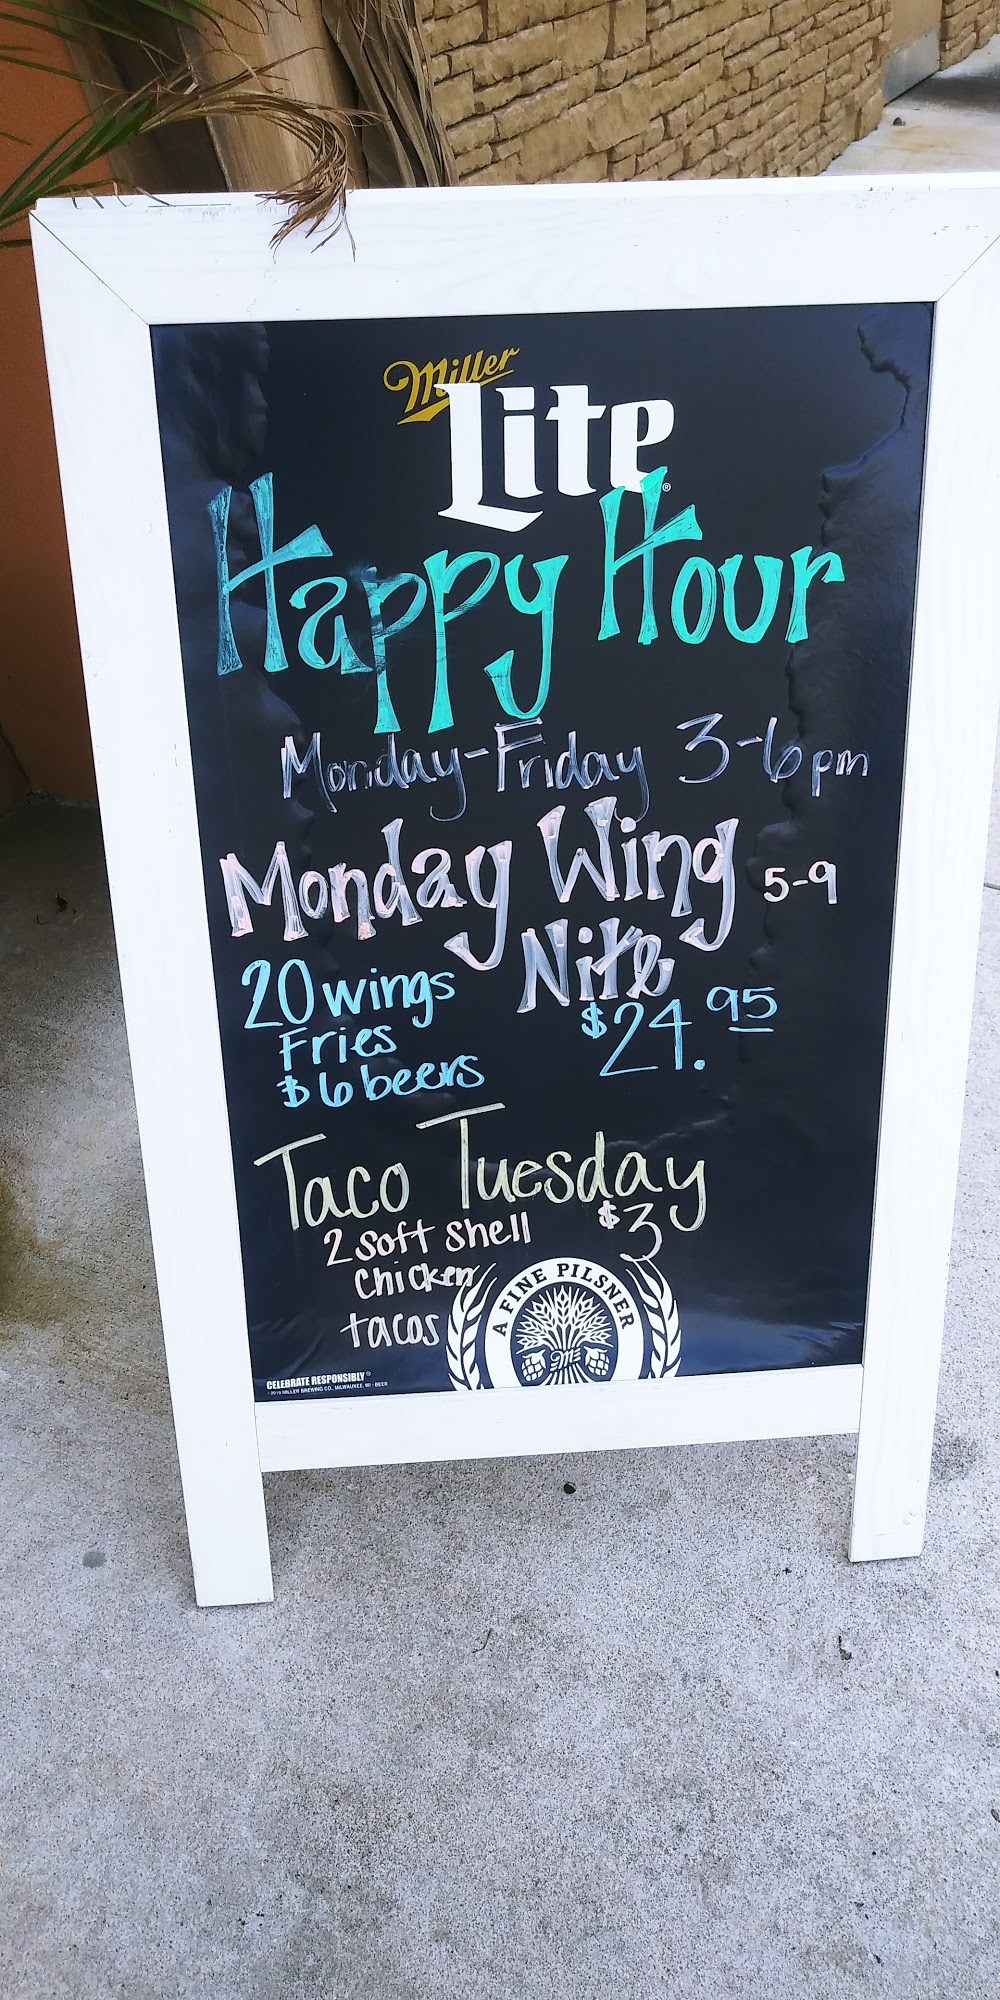 Miller
Lite
Happy Hour
Monday-Friday 3-6pm
Monday Wing 5-9
Nite
20 wings $24.95
Fries
$6 beers
Taco Tuesday
2 soft shell $3
chicken
tacos
A FINE PILSNER
M
CELEBRATE RESPONSIBLY®
©2019 MILLER BREWING CO., MILWAUKEE, WI • BEER